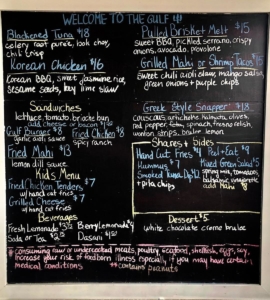 WELCOME TO THE GULF
Blackened Tuna $18
celery root puree, bok choy,
chili crisp
Korean Chicken $16
Korean BBQ, sweet jasmine rice,
sesame seeds, key lime slaw
Pulled Brisket Melt $15
sweet BBQ, pickled serrano, crispy
onions, avocado, provolone
Grilled Mahi or Shrimp Tacos $15
sweet chili aioli slaw, mango salsa,
green onions + purple chips
Sandwiches
lettuce, tomato, brioche bun
add cheese or bacon
Gulf Burger $8
garlic aioli sauce
Fried Chicken $8
spicy ranch
Fried Mahi $13
lemon dill sauce
Kids Menu
Fried Chicken Tenders $7
w/hand cut fries
Grilled Cheese $7
w/hand cut fries
Beverages
Fresh Lemonade
Berry Lemonade
Soda or Tea
Dasani
Greek Style Snapper $18
couscous, artichoke hearts, olives,
red pepper, feta, spinach, fresh relish,
wonton strips, lemon
Shares + Sides
Hand Cut Fries $4
Hummus $7
Smoked Tuna Dip
+ pita chips
Peel + Eat $9
Mixed Green Salad $5
spring mix, tomatoes,
vinaigrette
add Mahi $8
Dessert $5
white chocolate creme brulee
* consuming raw or undercooked meats, poultry, seafood, shellfish, eggs, may
increase your risk of foodborn illness, especially if you may have certain
medical conditions
**contains peanuts